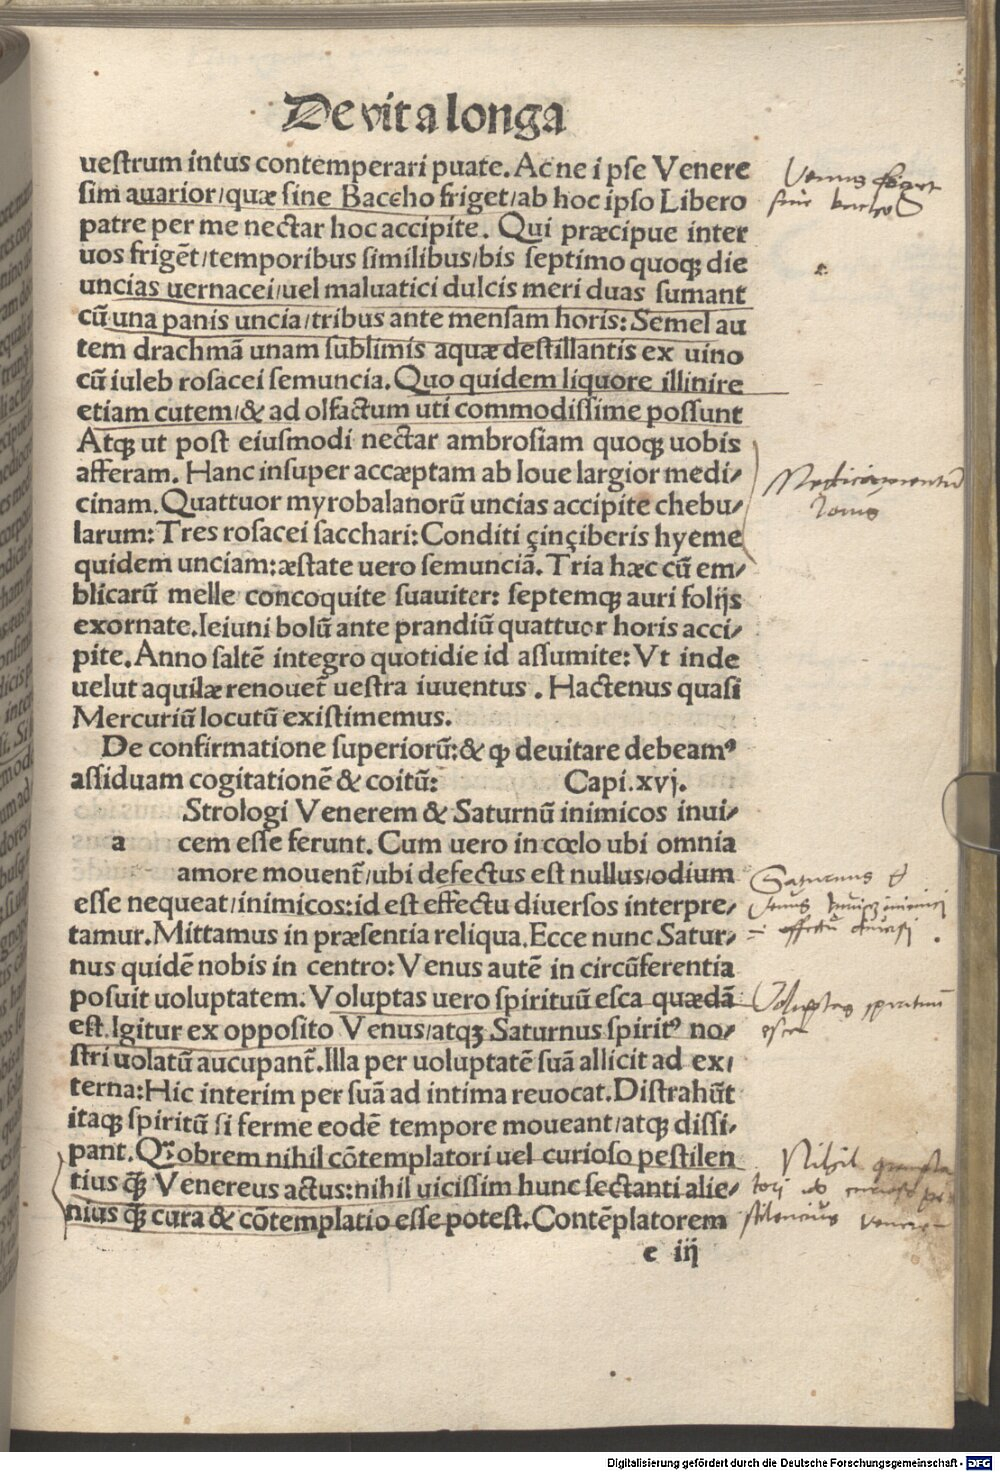 De vita longa
uestrum intus contemperari putate. Ac ne ipse Venere
sim auarior/quæ sine Baccho friget/ab hoc ipso Libero
patre per me nectar hoc accipite. Qui præcipue inter
uos frigēt/temporibus similibus/bis septimo quoqꝫ die
uncias uernacei/uel maluatici dulcis meri duas sumant
cū una panis uncia/tribus ante mensam horis: Semel au
tem drachmā unam sublimis aquæ destillantis ex uino
cū iuleb rosacei semuncia. Quo quidem liquore illinire
etiam cutem/& ad olfactum uti commodissime possunt
Atqꝫ ut post eiusmodi nectar ambrosiam quoqꝫ uobis
afferam. Hanc insuper accæptam ab Ioue largior medi/
cinam. Quattuor myrobalanorū uncias accipite chebu/
larum: Tres rosacei sacchari: Conditi çinçiberis hyeme
quidem unciam: æstate uero semunciā. Tria hæc cū em/
blicarū melle concoquite suauiter: septemqꝫ auri folijs
exornate. Ieiuni bolū ante prandiū quattuor horis acci/
pite. Anno saltē integro quotidie id assumite: Vt inde
uelut aquilæ renouet̃ uestra iuuentus. Hactenus quasi
Mercuriū locutū existimemus.
De confirmatione superiorū: & ꝙ deuitare debeamꝰ
assiduam cogitationē & coitū: Capi. xvj.
Strologi Venerem & Saturnū inimicos inui/
a cem esse ferunt. Cum uero in cœlo ubi omnia
amore mouent̃/ubi defectus est nullus/odium
esse nequeat/inimicos: id est effectu diuersos interpre/
tamur. Mittamus in præsentia reliqua. Ecce nunc Satur/
nus quidē nobis in centro: Venus autē in circūferentia
posuit uoluptatem. Voluptas uero spirituū esca quædā
est. Igitur ex opposito Venus/atqꝫ Saturnus spiritꝰ no/
stri uolatū aucupant̃. Illa per uoluptatē suā allicit ad ex/
terna: Hic interim per suā ad intima reuocat. Distrahūt
itaqꝫ spiritū si ferme eodē tempore moueant/atqꝫ dissi/
pant. Qꝛobrem nihil cōtemplatori uel curioso pestilen
tius ꝗ̃ Venereus actus: nihil uicissim hunc sectanti alie/
nius ꝗ̃ cura & cōtemplatio esse potest. Contēplatorem
e iij
Venus friget
sine baccho
Iouis
Saturnus &
Venus
Voluptas spirituū
esca
Nihil
Digitalisierung gefördert durch die Deutsche Forschungsgemeinschaft - DFG